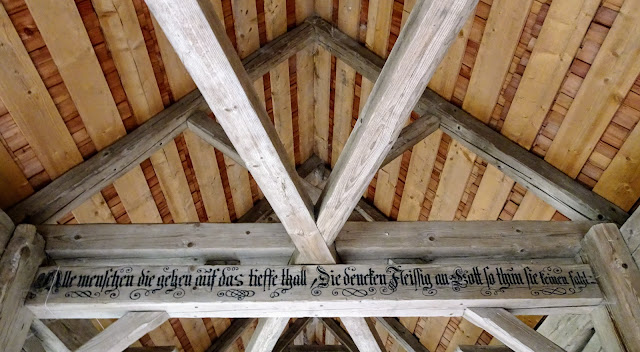 Alle menschen die gehen auf das tieffe thall, Sie dencken Fleisig an Gott so thun sie keinen fahl.